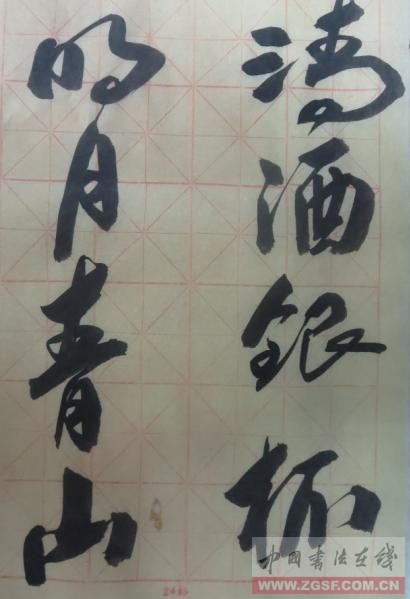 清酒銀杯
明月青山
中国书法在线
WWW.ZGSF.COM.CN